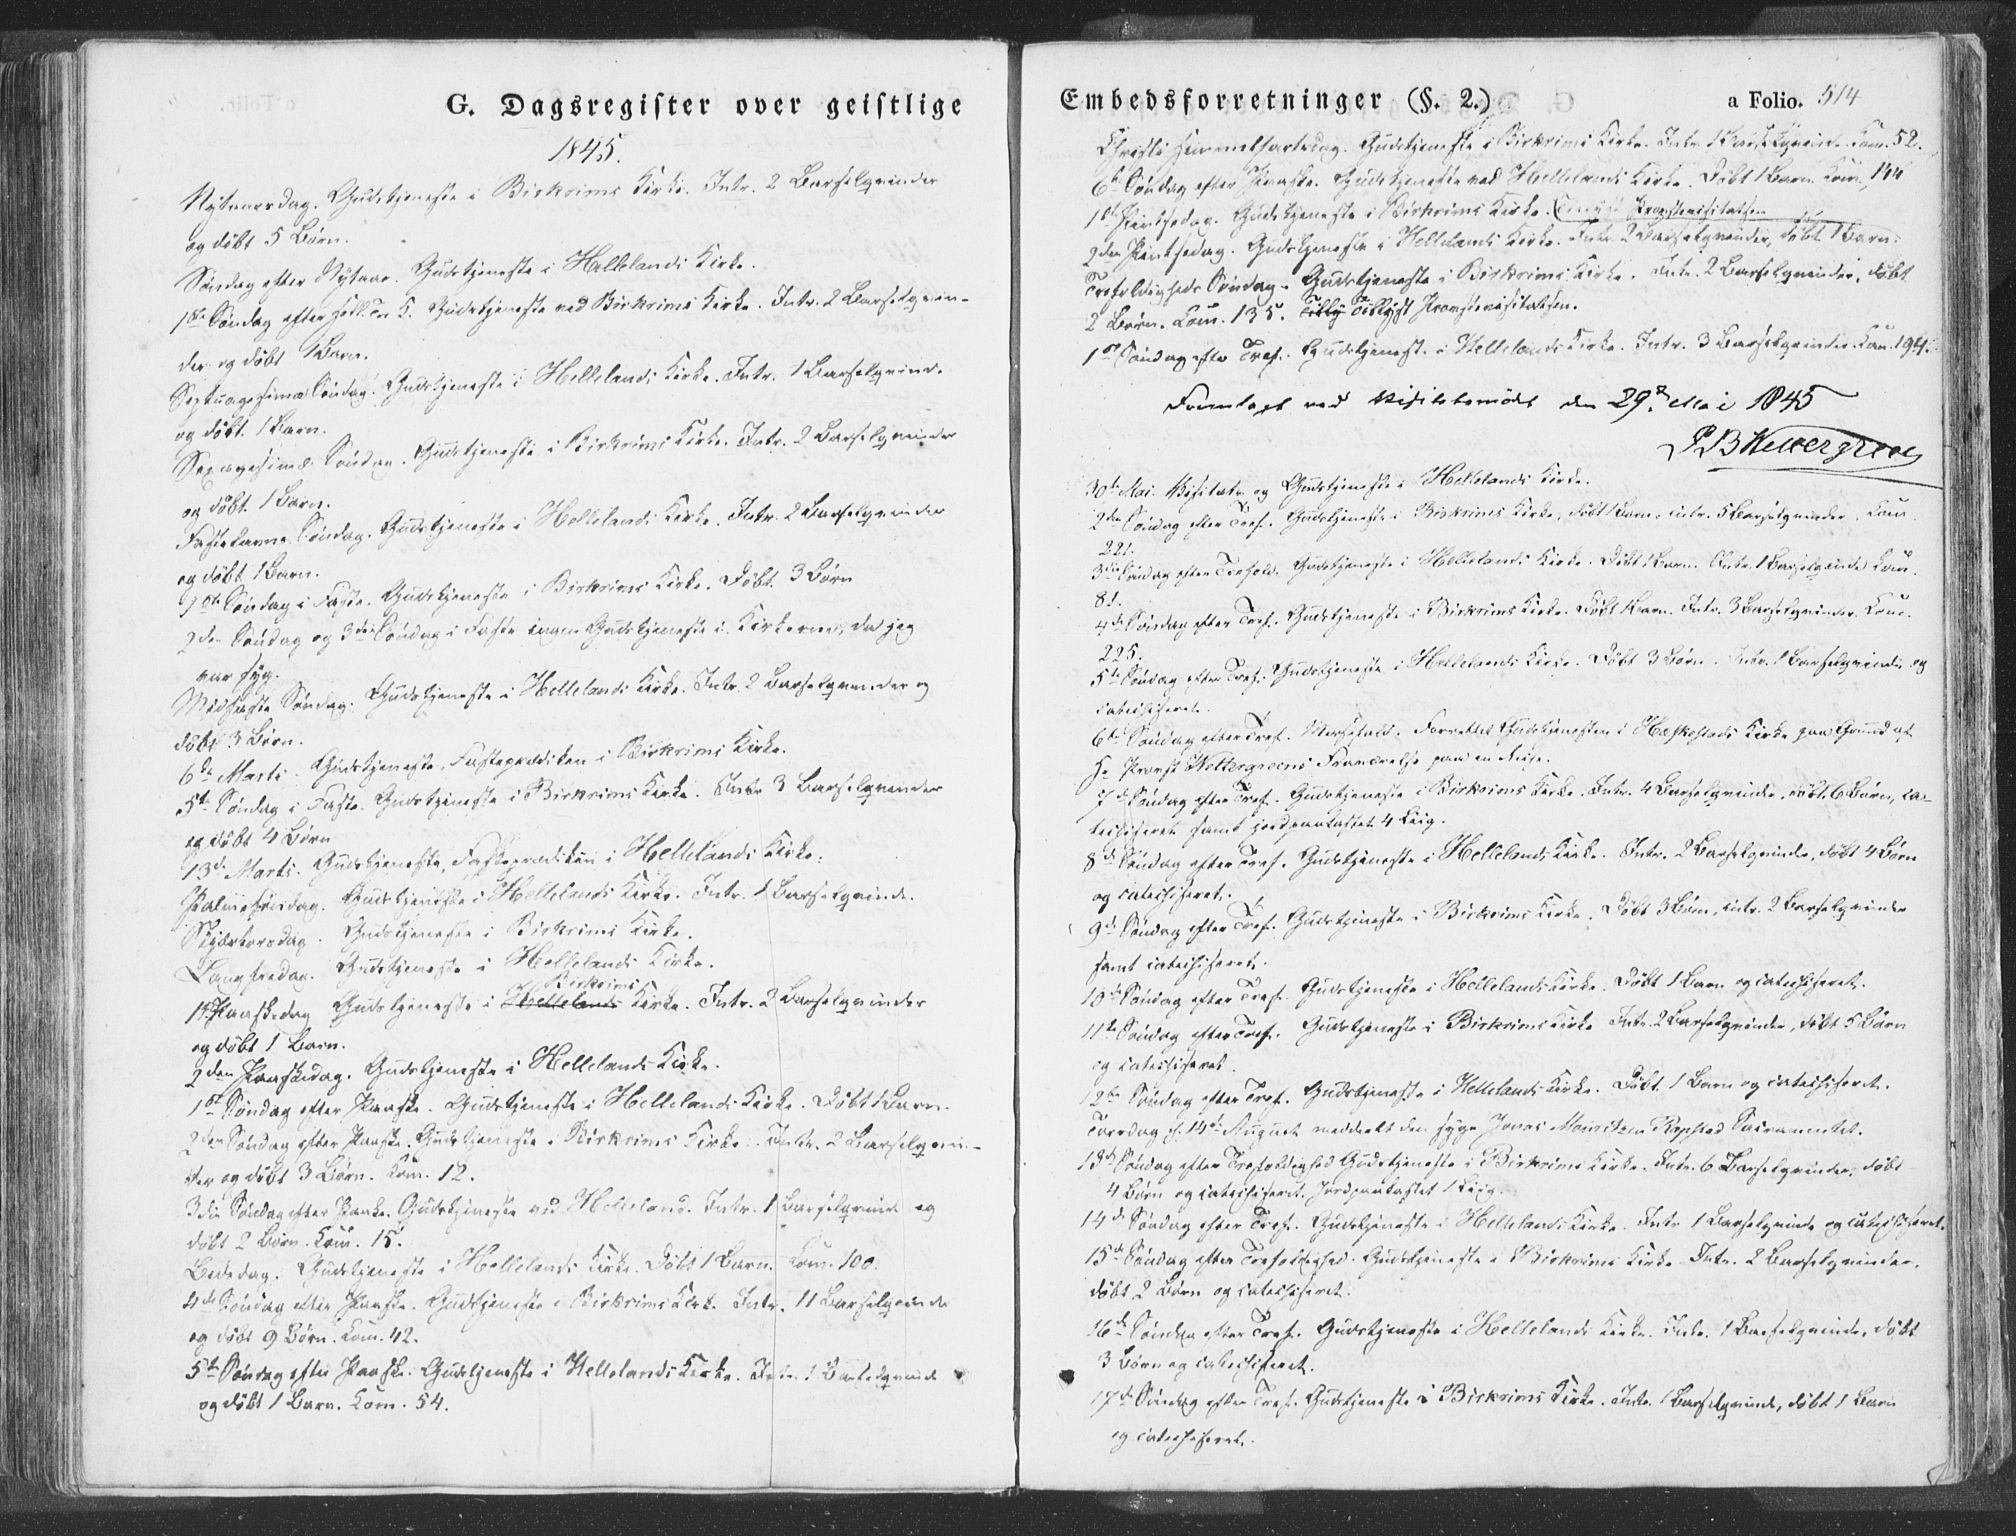 G. Dagsregister over geistlige
1845.
Nytaarsdag. Gudstjeneste i Birkrims Kirke. Intr. 2 Barselqvinder
og döbt 5 Börn.
Söndag efter Nytaar. Gudstjeneste i Hellelands Kirke.
1ste Söndag efter Hell. Tre K. Gudstjeneste ved Birkrims Kirke. Intr. 2 Barselqvin-
der og döbt 1 Barn.
Septuagesima Söndag. Gudstjeneste i Hellelands Kirke. Intr. 1 Barselqvinde
og döbt 1 Barn.
Sexagesima Söndag. Gudstjeneste i Birkrims Kirke. Intr. 2 Barselqvinder
og döbt 1 Barn.
Fastelavns Söndag. Gudstjeneste i Hellelands Kirke. Intr. 2 Barselqvinder
og döbt 1 Barn.
1ste Söndag i Faste. Gudstjeneste i Birkrims Kirke. Döbt 3 Börn
2den Söndag og 3die Söndag i Faste ingen Gudstjeneste i Kirkerne, da jeg
var syg.
Midfaste Söndag. Gudstjeneste i Hellelands Kirke. Intr. 2 Barselqvinder og
döbt 3 Börn.
6te Marts. Gudstjeneste, Fasteprædiken i Birkrims Kirke.
5te Söndag i Faste. Gudstjeneste i Birkrims Kirke. Intr. 3 Barselqvinder
og döbt 4 Börn
13de Marts. Gudstjeneste, Fasteprædiken i Hellelands Kirke.
Palmesöndag. Gudstjeneste i Hellelands Kirke. Intr. 1 Barselqvinde.
Skjærtorsdag. Gudstjeneste i Birkrims Kirke.
Langfredag. Gudstjeneste i Hellelands Kirke.
Birkrims
1ste Paaskedag Gudstjeneste i Hellelands Kirke. Intr. 2 Barselqvinder
og döbt 1 Barn.
2den Paaskedag. Gudstjeneste i Hellelands Kirke.
1ste Söndag efter Paaske. Gudstjeneste i Hellelands Kirke. Döbt 1 Barn.
2den Söndag efter Paaske. Gudstjeneste i Birkrims Kirke. Intr. 2 Barselqvin-
der og döbt 3 Börn. Com. 12.
3die Söndag efter Paaske. Gudstjeneste ved Helleland. Intr. 1 Barselqvinde og
döbt 2 Börn. Com. 15.
Bededag. Gudstjeneste i Hellelands Kirke. Döbt 1 Barn. Com. 100.
4de Söndag efter Paaske. Gudstjeneste i Birkrims Kirke. Intr. 11 Barselqvinder
og döbt 9 Börn. Com. 42.
5te Söndag efter Paaske. Gudstjeneste i Hellelands Kirke. Intr. 1 Barselqvinde
og döbt 1 Barn. Com. 54.
Embedsforretninger (§. 2.) a Folio. 514
Christi Himmelfartsdag. Gudstjeneste i Birkrims Kirke. Intr. 1 Barselqvinde. Com. 52.
6te Söndag efter Paaske. Gudstjeneste ved Hellelands Kirke. Döbt 1 Barn Com. 144
1ste Pintsedag. Gudstjeneste i Birkrims Kirke. Provstevisitatsen
2den Pintsedag. Gudstjeneste i Hellelands Kirke. Intr. 2 Barselqvinder, döbt 1 Barn.
Trefoldigheds Söndag. Gudstjeneste i Birkrims Kirke. Intr. 2 Barselqvinder, döbt
2 Börn. Com. 135. Tilly Tillyst Provstevisitatsen.
1ste Söndag efter Tref. Gudstjeneste i Hellelands Kirke. Intr. 3 Barselqvinder. Com. 194.
Fremlagt ved Visitatsmödet den 29de Mai 1845
30te Mai. Visitats og Gudstjeneste i Hellelands Kirke.
2den Söndag efter Tref. Gudstjeneste i Birkrims Kirke, döbt 1 Barn, intr. 5 Barselqvinder, Com.
221.
3die Söndag efter Trefold. Gudstjeneste i Hellelands Kirke. Döbt 1 Barn. Intr. 1 Barselqvinde Com.
81.
4de Söndag efter Tref. Gudstjeneste i Birkrims Kirke. Döbt 1 Barn. Intr. 3 Barselqvinder. Com.
225.
5te Söndag efter Tref. Gudstjeneste i Hellelands Kirke. Döbt 3 Börn. Intr. 1 Barselqvinde og
catechiseret.
6te Söndag efter Tref. Forrettet Gudstjenesten i Heskestads Kirke paa Grund af
Hr Provst Wettergreens Fraværelse paa en Reise.
7de Söndag efter Tref. Gudstjeneste i Birkrims Kirke. Intr. 4 Barselqvinder, döbt 6 Börn, ca-
techiseret samt jordpaakastet 4 Liig.
8de Söndag efter Tref. Gudstjeneste i Hellelands Kirke. Intr. 2 Barselqvinder, döbt 4 Börn
og catechiseret.
9de Söndag efter Tref. Gudstjeneste i Birkrims Kirke. Döbt 3 Börn, intr. 2 Barselqvinder
samt catechiseret.
10de Söndag efter Tref. Gudstjeneste i Hellelands Kirke. Döbt 1 Barn og catechiseret.
11te Söndag efter Tref. Gudstjeneste i Birkrims Kirke Intr. 2 Barselqvinder, döbt 5 Börn
og catechiseret.
12te Söndag efter Tref. Gudstjeneste i Hellelands Kirke. Döbt 1 Barn og catechiseret.
Torsdag d. 14de August meddeelt den syge Jonas Mauritzen Røpstad Sacramentet.
13de Söndag efter Trefoldighed Gudstjeneste i Birkrims Kirke. Intr. 6 Barselqvinder, döbt
4 Börn og catechiseret. Jordpaakastet 1 Liig.
14de Söndag efter Tref. Gudstjeneste i Hellelands Kirke. Intr. 1 Barselqvinde og catechiseret.
15de Söndag efter Trefoldighed. Gudstjeneste i Birkrims Kirke. Intr. 2 Barselqvinder,
döbt 2 Börn og catechiseret.
16de Söndag efter Tref. Gudstjeneste i Hellelands Kirke. Intr. 1 Barselqvinde, döbt
3 Börn og catechiseret.
17de Söndag efter Tref. Gudstjeneste i Birkrims Kirke. Intr. 1 Barselqvinde, döbt 1 Barn
og catechiseret.